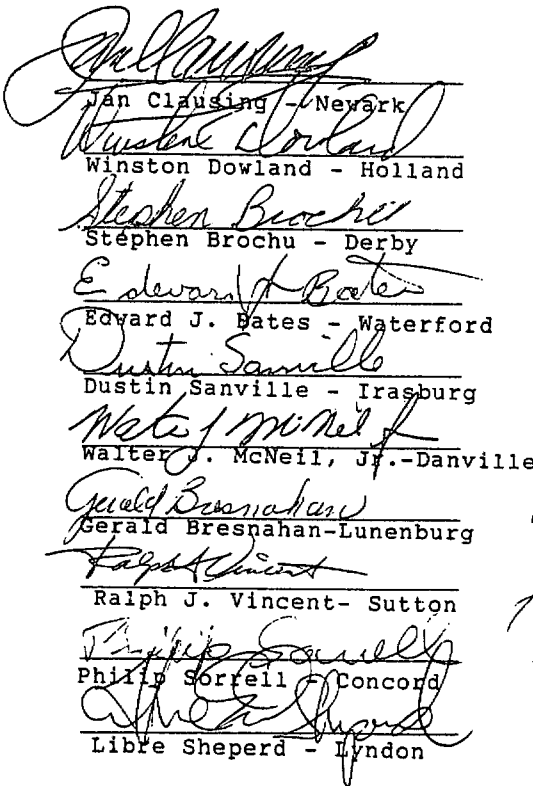 Jan Clausing
Jan Clausing - Newark
Winston Dowland
Winston Dowland - Holland
Stephen Brochu
Stephen Brochu - Derby
Edward J. Bates
Edward J. Bates - Waterford
Dustin Sanville
Dustin Sanville - Irasburg
Walter J McNeil Jr
Walter J. McNeil, Jr.-Danville
Gerald Bresnahan
Gerald Bresnahan-Lunenburg
Ralph J Vincent
Ralph J. Vincent- Sutton
Philip Sorrell
Philip Sorrell - Concord
Libre Sheperd - Lyndon